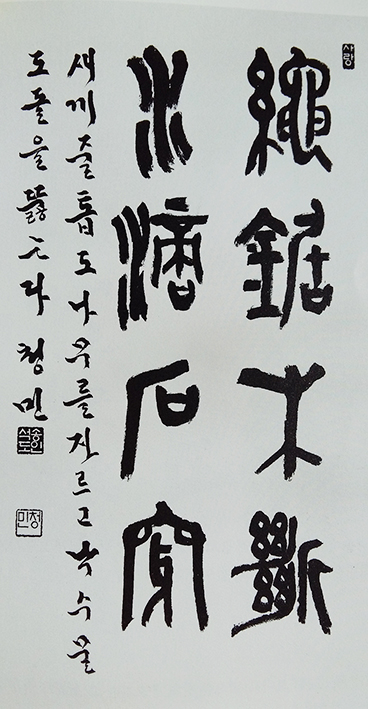 사랑
繩鋸木斷
水滴石穿
새끼줄톱도나무를자르고낙수물
도돌을뚫는다 청민
청민